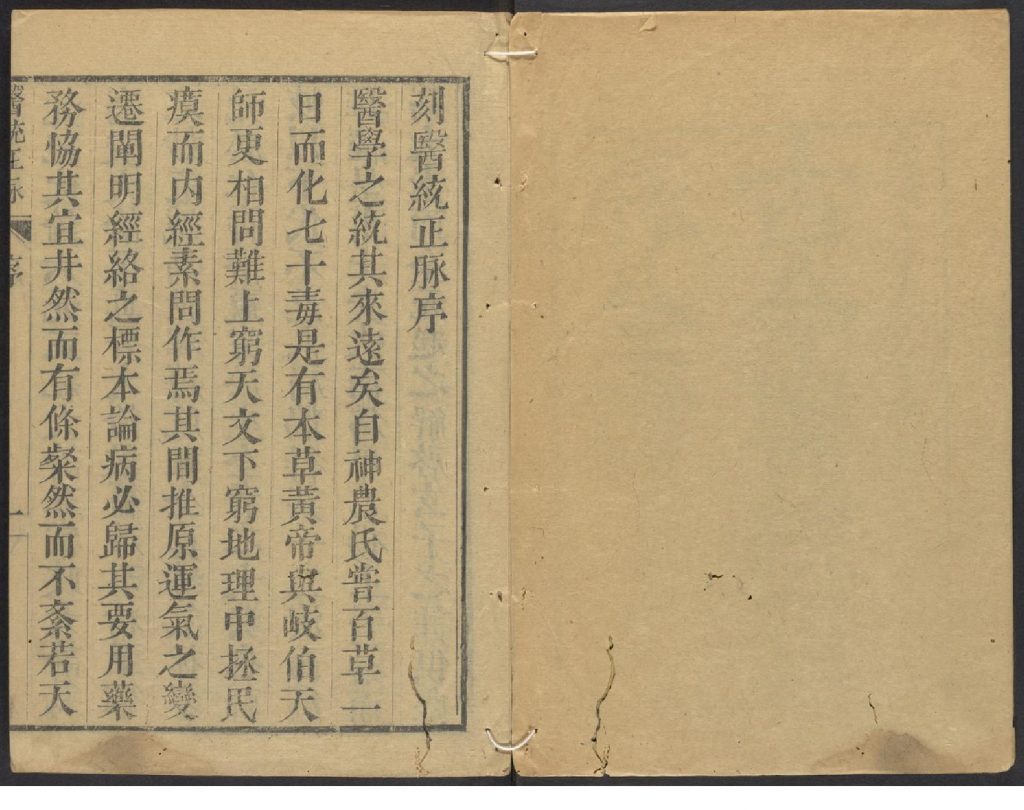 刻醫統正脉序
醫學之統其來遠矣自神農氏嘗百草一
日而化七十毒是有本草黃帝與岐伯天
師更相問難上窮天文下窮地理中拯民
瘼而内經素問作焉其間推原運氣之變
遷闡明經絡之標本論病必歸其要用藥
務恊其宜井然而有條粲然而不紊若天
醫統正脉 序 一